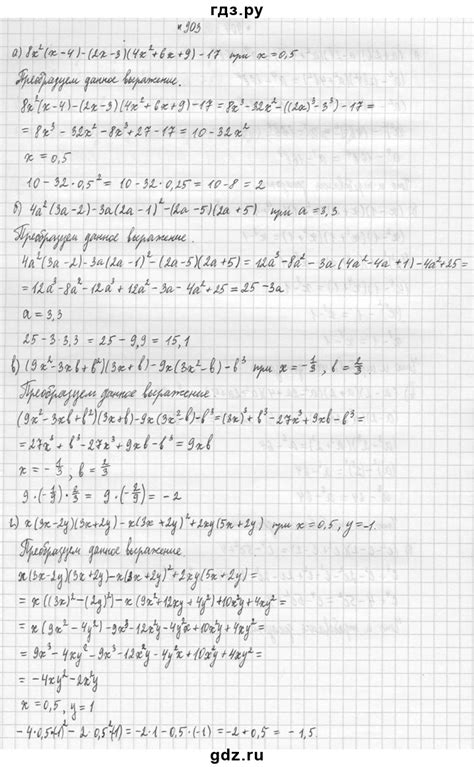 гдз.ру
№903
а) 8x²(x-4)-(2x-3)(4x²+6x+9)-17 при x=0,5
Преобразуем данное выражение.
8x²(x-4)-(2x-3)(4x²+6x+9)-17=8x³-32x²-((2x)³-3³)-17=
=8x³-32x²-8x³+27-17=10-32x²
x=0,5
10-32·0,5²=10-32·0,25=10-8=2
б) 4a²(3a-2)-3a(2a-1)²-(2a-5)(2a+5) при a=3,3.
Преобразуем данное выражение.
4a²(3a-2)-3a(2a-1)²-(2a-5)(2a+5)=12a³-8a²-3a(4a²-4a+1)-4a²+25=
=12a³-8a²-12a³+12a²-3a-4a²+25=25-3a
a=3,3
25-3·3,3=25-9,9=15,1
в) (9x²-3xb+b²)(3x+b)-9x(3x²-b)-b³ при x=-1/3, b=2/3
Преобразуем данное выражение
(9x²-3xb+b²)(3x+b)-9x(3x²-b)-b³=(3x)³+b³-27x³+9xb-b³=
=27x³+b³-27x³+9xb-b³=9xb
x=-1/3, b=2/3
9·(-1/9)·2/3=9·(-2/9)=-2
г) x(3x-2y)(3x+2y)-x(3x+2y)²+2xy(5x+2y) при x=0,5, y=-1.
Преобразуем данное выражение.
x(3x-2y)(3x+2y)-x(3x+2y)²+2xy(5x+2y)=
=x((3x)²-(2y)²)-x(9x²+12xy+4y²)+10x²y+4xy²=
=x(9x²-4y²)-9x³-12x²y-4y²x+10x²y+4xy²=
=9x³-4xy²-9x³-12x²y-4y²x+10x²y+4xy²=
=-4xy²-2x²y
x=0,5, y=1
-4·0,5(-1)²-2·0,5²(-1)=-2·1-0,5·(-1)=-2+0,5=-1,5.
gdz.ru